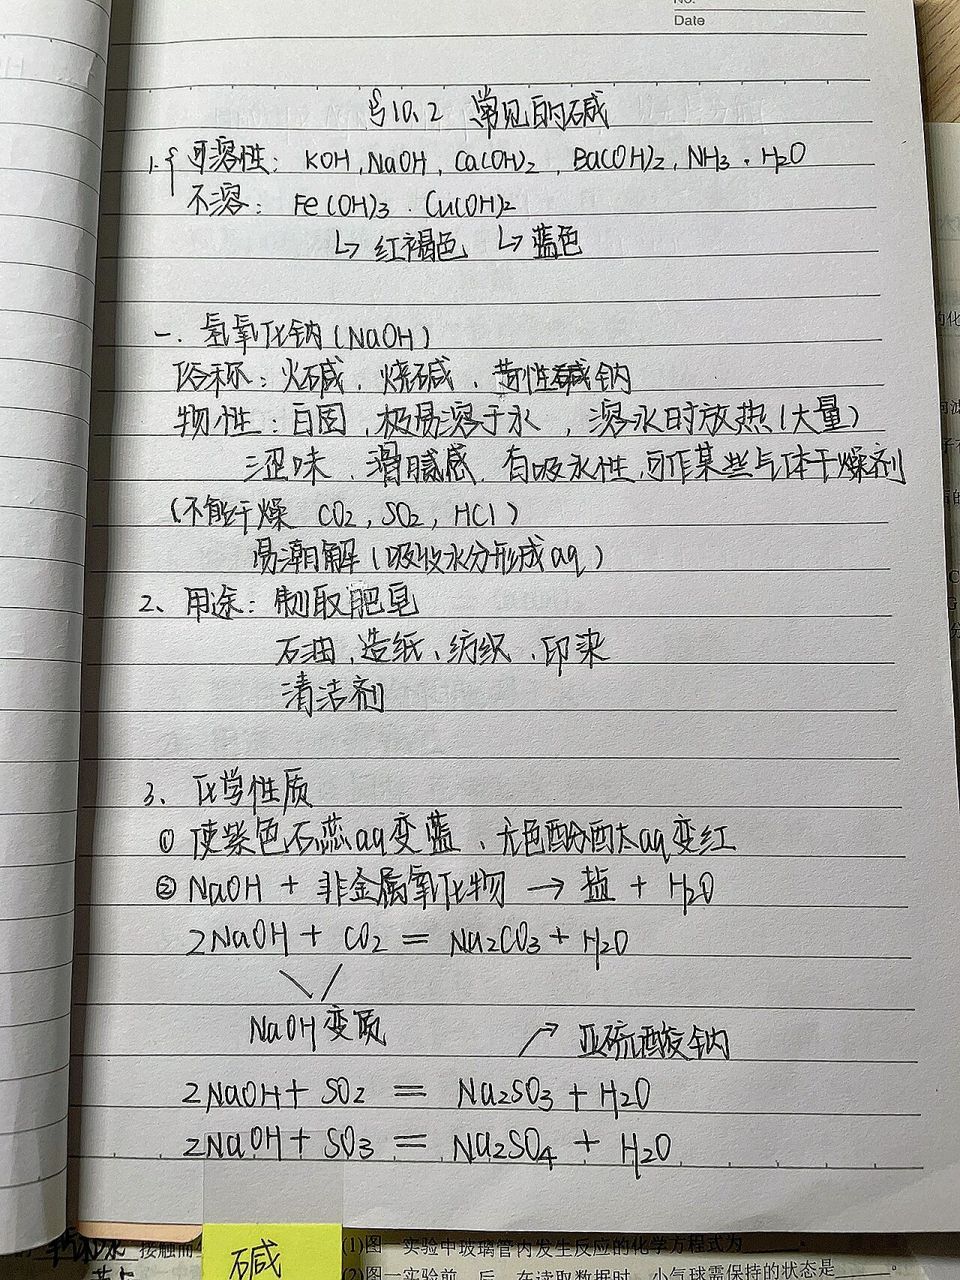 No.
Date
§10.2 常见的碱
1.{ 可溶性: KOH,NaOH,Ca(OH)2,Ba(OH)2,NH3·H2O
不溶: Fe(OH)3.Cu(OH)2
↳红褐色 ↳蓝色
一.氢氧化钠(NaOH)
俗称:火碱、烧碱、苛性钠
物性:白固,极易溶于水,溶水时放热(大量)
涩味、滑腻感.有吸水性,可作某些气体干燥剂
(不能干燥 CO2,SO2,HCl)
易潮解(吸收水分形成aq)
2、用途:制取肥皂
石油、造纸、纺织、印染
清洁剂
3、化学性质
① 使紫色石蕊aq变蓝、无色酚酞aq变红
② NaOH + 非金属氧化物 → 盐 + H2O
2NaOH + CO2 = Na2CO3 + H2O
NaOH变质
↗亚硫酸钠
2NaOH + SO2 = Na2SO3 + H2O
2NaOH + SO3 = Na2SO4 + H2O
碱
接触而
(1)图一实验中玻璃管内发生反应的化学方程式为
(2)图一实验前、后,在读取数据时,小气球需保持的状态是